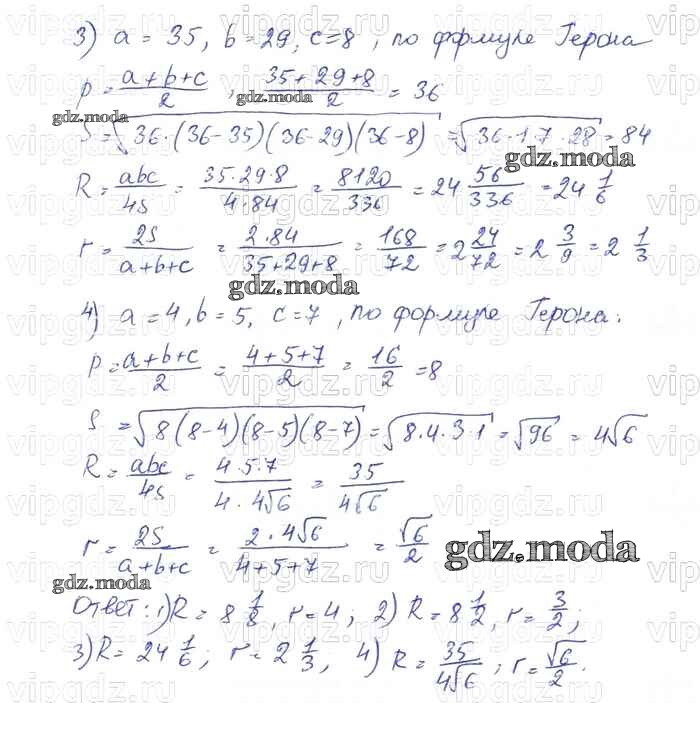 3) a = 35, b = 29, c = 8, по формуле Герона
p = (a + b + c)/2, (35 + 29 + 8)/2 = 36
gdz.moda
S = √(36·(36-35)(36-29)(36-8)) = √(36·1·7·28) = 84
gdz.moda
R = abc/4S = (35·29·8)/(4·84) = 8120/336 = 24 56/336 = 24 1/6
r = 2S/(a+b+c) = (2·84)/(35+29+8) = 168/72 = 2 24/72 = 2 3/9 = 2 1/3
gdz.moda
4) a = 4, b = 5, c = 7, по формуле Герона:
p = (a+b+c)/2 = (4+5+7)/2 = 16/2 = 8
S = √(8(8-4)(8-5)(8-7)) = √(8·4·3·1) = √96 = 4√6
R = abc/4S = (4·5·7)/(4·4√6) = 35/(4√6)
r = 2S/(a+b+c) = (2·4√6)/(4+5+7) = √6/2
gdz.moda
gdz.moda
Ответ: 1) R = 8 1/8, r = 4; 2) R = 8 1/2, r = 3/2;
3) R = 24 1/6; r = 2 1/3, 4) R = 35/(4√6); r = √6/2.
vipgdz.ru